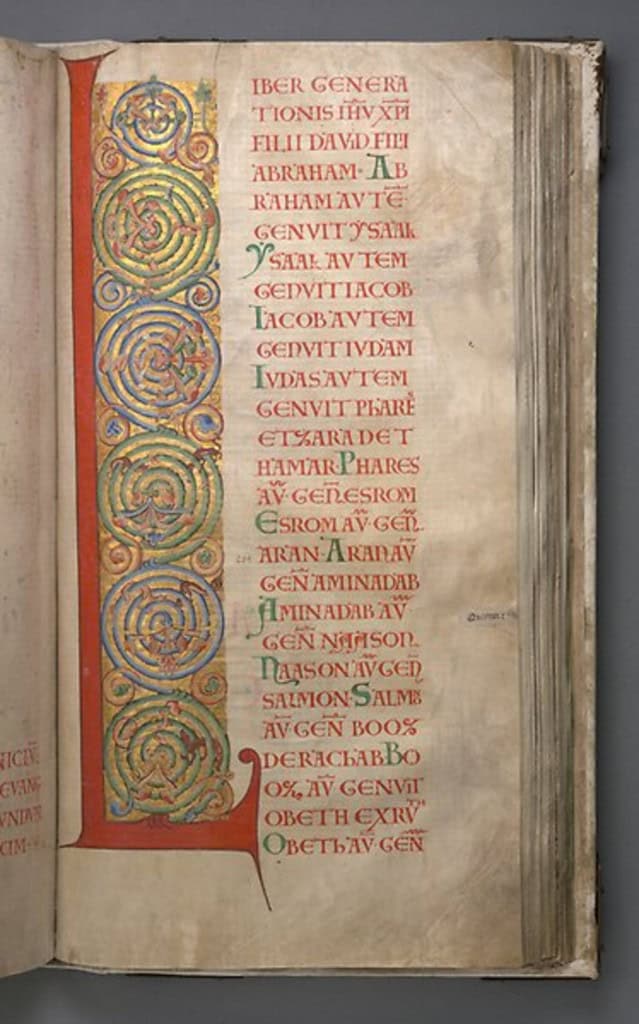 NICIV̄
EVANG
VNDVM
CIM·
LIBER GENERA
TIONIS IH̄V XP̄I
FILII DAVID FILII
ABRAHAM· AB
RAHAM AVTĒ·
GENVIT YSAAK
YSAAK AVTEM
GENVIT IACOB
IACOB AVTEM
GENVIT IVDAM
IVDAS AVTEM
GENVIT PHARĒ
ET ZARA DE T
HAMAR· PHARES
AV̄· GEN̄· ESROM
ESROM AV̄· GEN̄·
ARAN· ARAN AV̄
GEN̄ AMINADAB
AMINADAB AV̄
GEN̄ NAASON·
NAASON AV̄ GEN̄
SALMON· SALMŌ
AV̄· GEN̄ BOOZ
DE RACHAB BO
OZ, AV̄ GENVIT
OBETH EX RVTH
OBETH AV̄· GEN̄